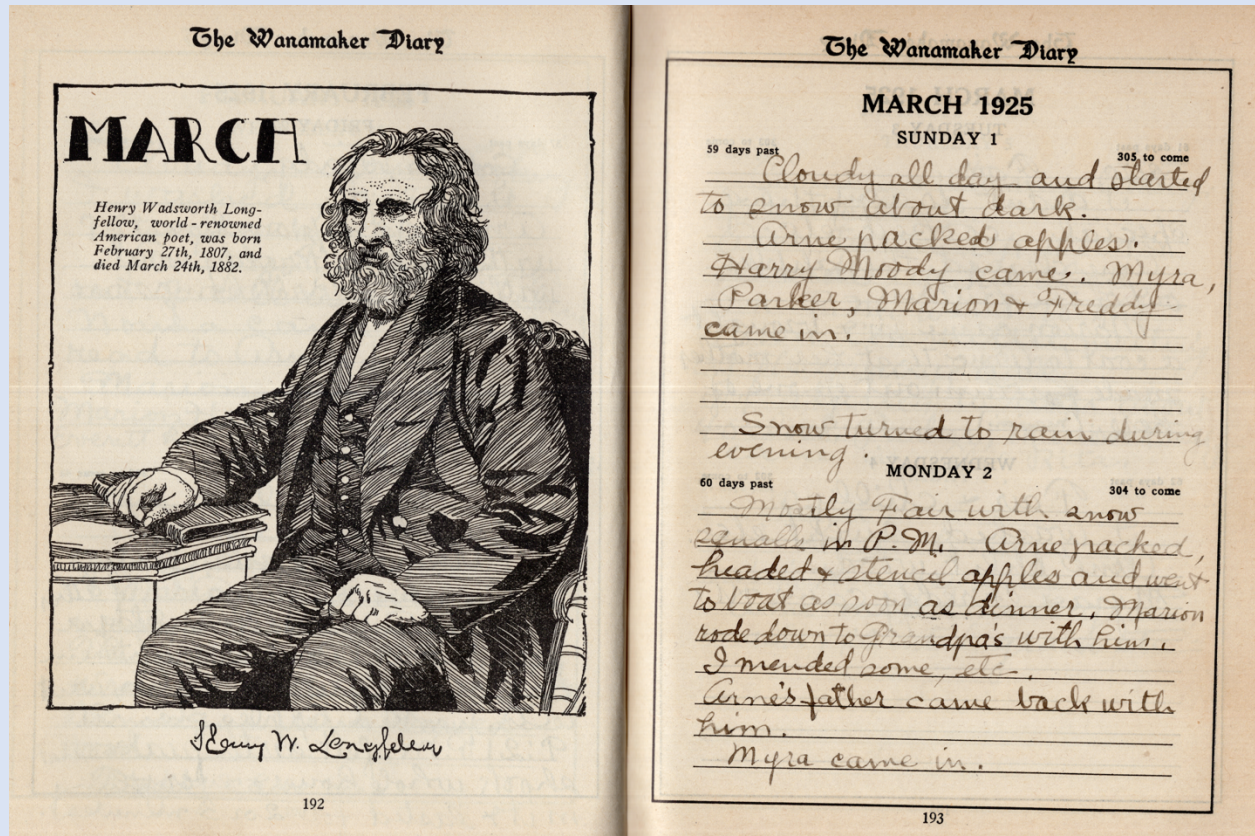 The Wanamaker Diary
MARCH
Henry Wadsworth Long-
fellow, world-renowned
American poet, was born
February 27th, 1807, and
died March 24th, 1882.
Henry W. Longfellow
192
The Wanamaker Diary
MARCH 1925
SUNDAY 1
59 days past 305 to come
Cloudy all day and started
to snow about dark.
Arne packed apples.
Harry Moody came. Myra,
Parker, Marion & Freddy
came in.
Snow turned to rain during
evening.
MONDAY 2
60 days past 304 to come
Mostly Fair with snow
squalls in P.M. Arne packed,
headed & stencil apples and went
to boat as soon as dinner. Marion
rode down to Grandpa's with him.
I mended some, etc.
Arne's father came back with
him.
Myra came in.
193